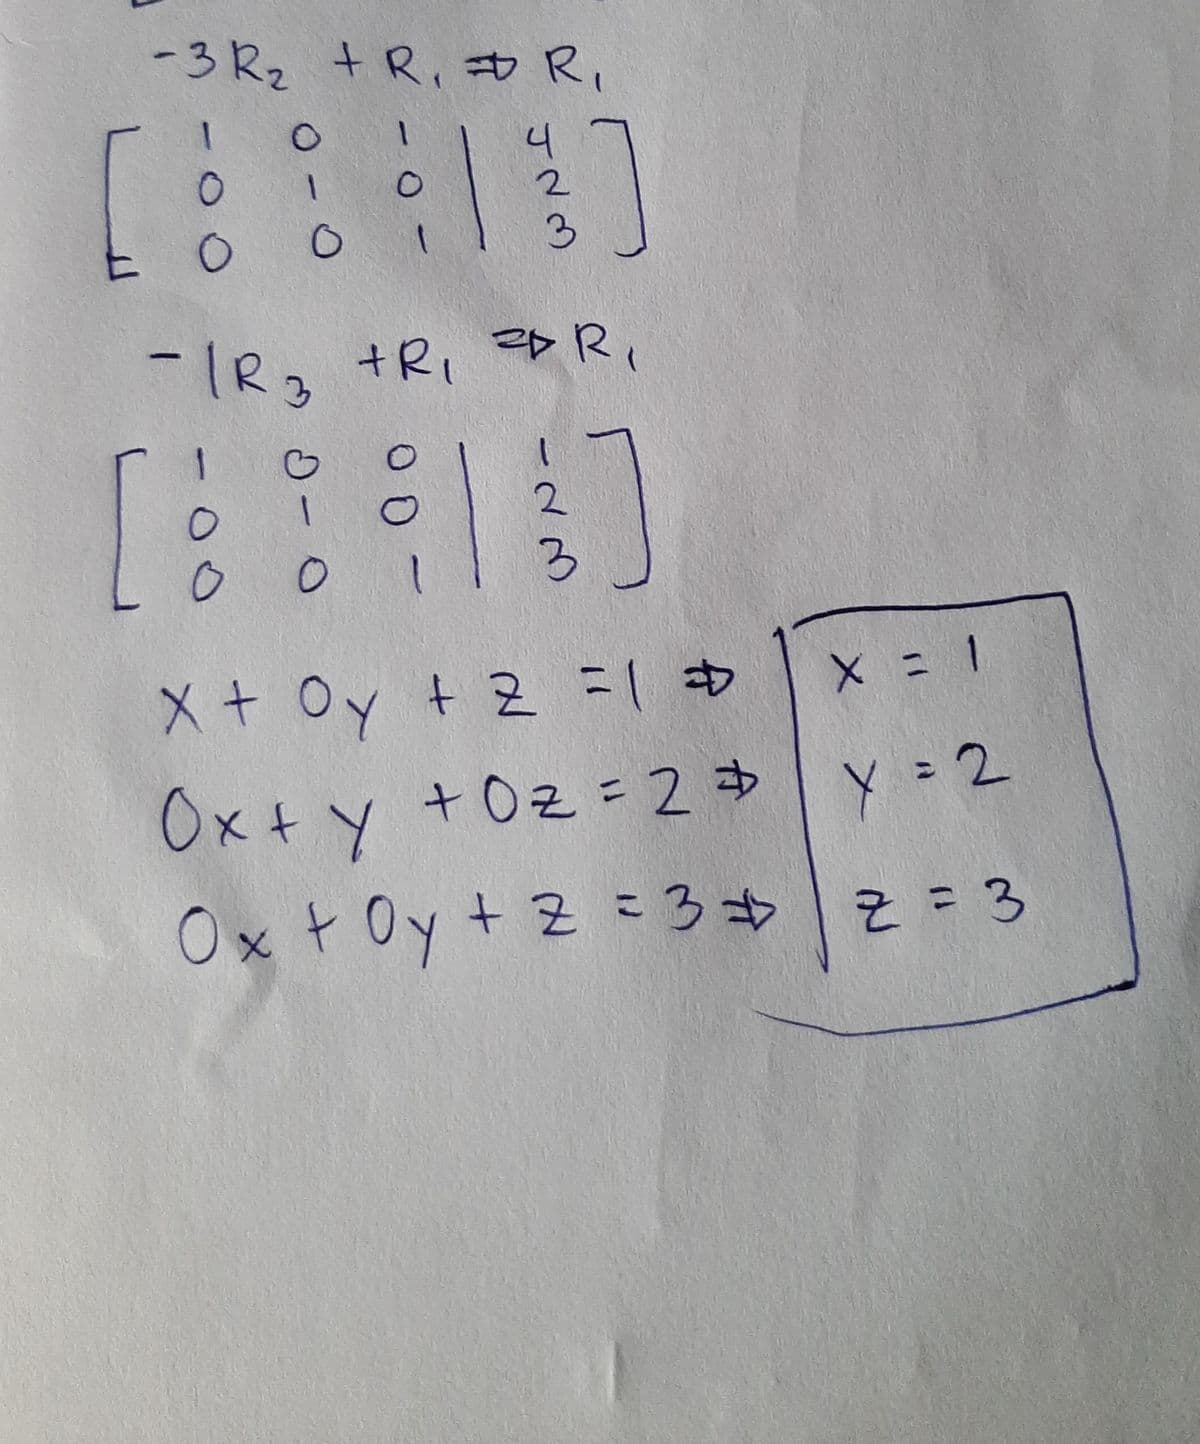 -3R₂ + R₁ ⇒ R₁
[ 1 0 1 | 4 ]
0 1 0 | 2
0 0 1 | 3
-1R₃ + R₁ ⇒ R₁
[ 1 0 0 | 1 ]
0 1 0 | 2
0 0 1 | 3
x + 0y + z = 1 ⇒ x = 1
0x + y + 0z = 2 ⇒ y = 2
0x + 0y + z = 3 ⇒ z = 3